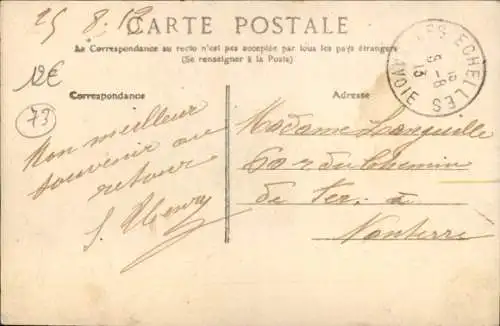 25 8 13
CARTE POSTALE
La Correspondance au recto n'est pas acceptée par tous les pays étrangers
(Se renseigner à la Poste)
LES ECHELLES
SAVOIE
5-8
13
12€
73
Correspondance
Adresse
Mon meilleur
souvenir au
retour
S. Henry
Madame Languille
60 r du Chemin
de Fer à
Nanterre